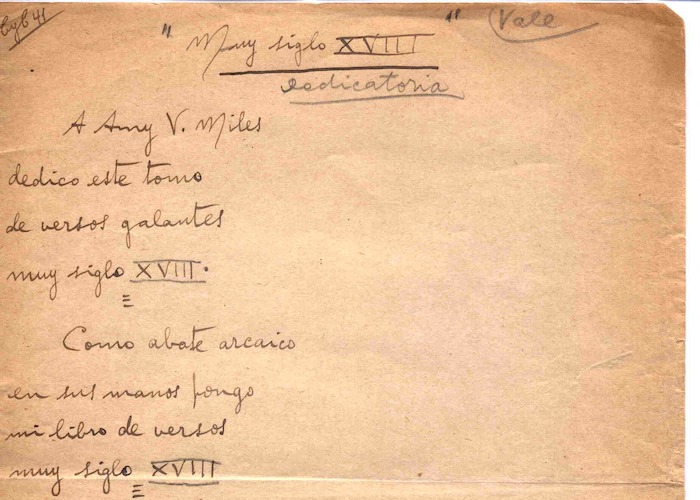 " Muy siglo XVIII " Vale
A Amy V. Miles
dedico este tomo
de versos galantes
muy siglo XVIII.
Como abate arcaico
en sus manos pongo
mi libro de versos
muy siglo XVIII